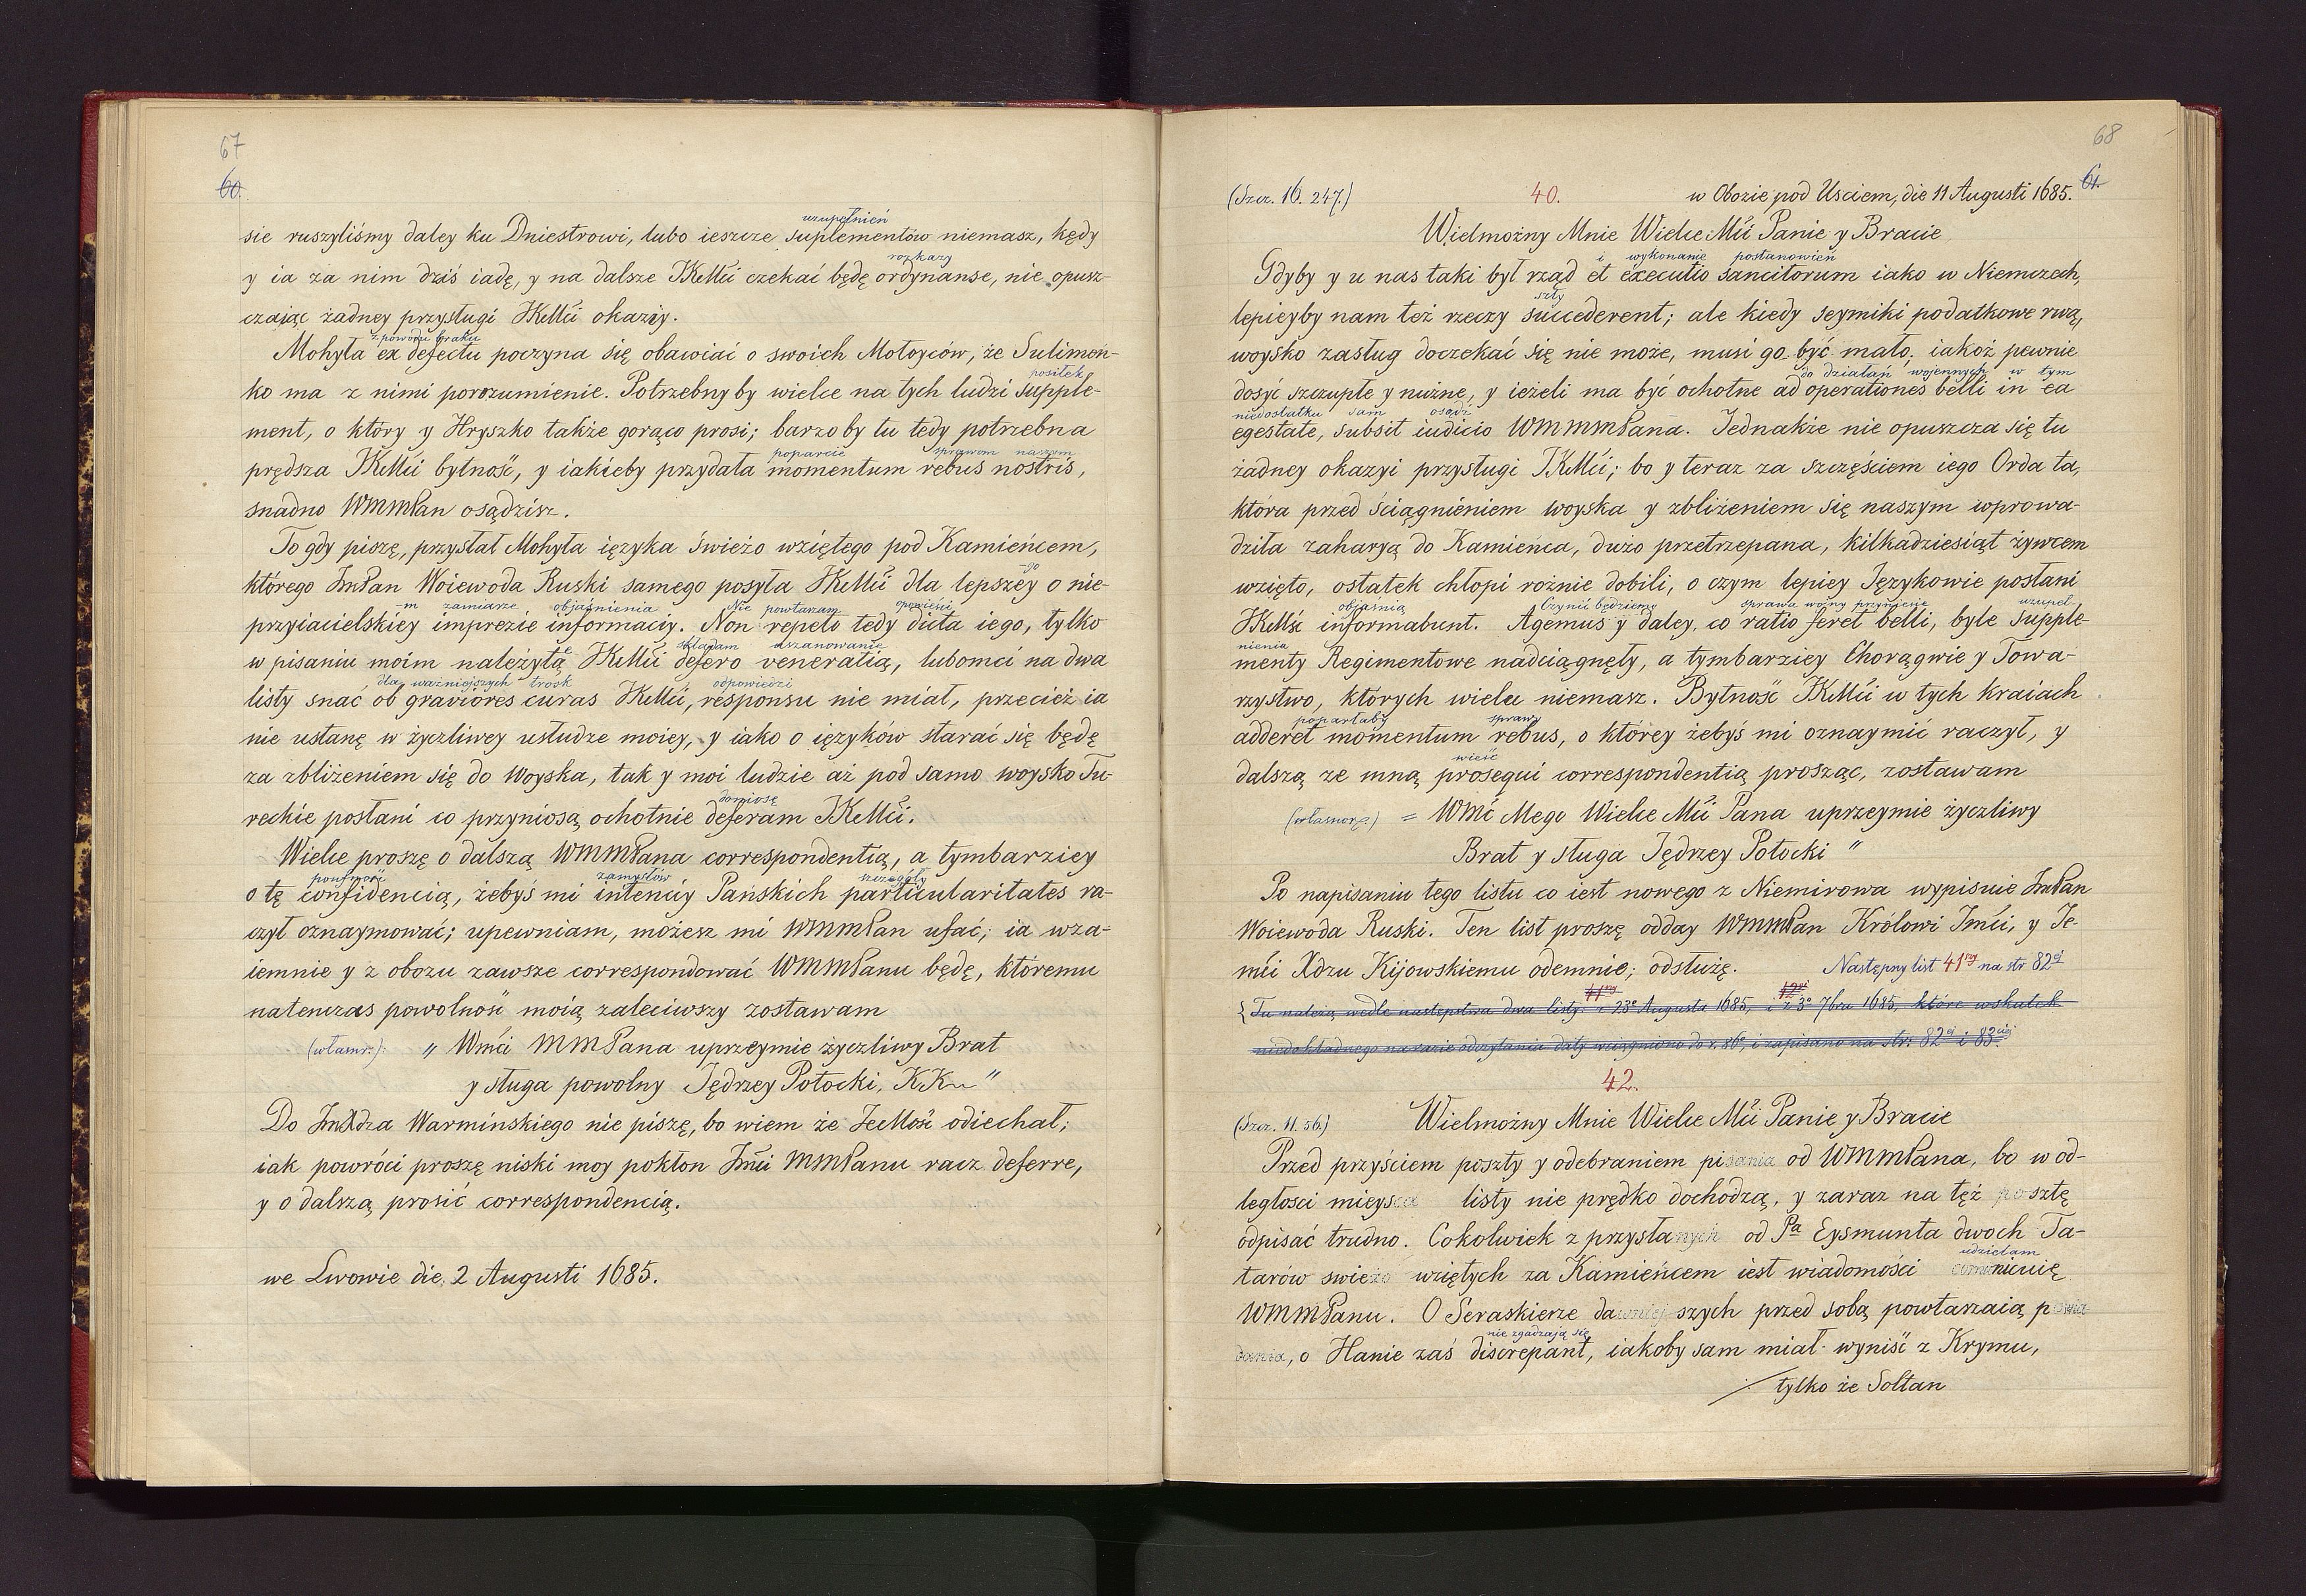 67
60.
uzupełnień
sie ruszyliśmy daley ku Dniestrowi, lubo ieszcze suplementów niemasz, kędy
rozkazy
y ia za nim dziś iadę, y na dalsze JKeMći czekać będę ordynanse, nie opusz-
czaiąc żadney przysługi JKeMći okaziy.
z powodu braku
Mohyła ex defectu poczyna się obawiać o swoich Mołoyców, że Sulimeń-
posiłek
ko ma z nimi porozumienie. Potrzebny by wielce na tych ludzi supple-
ment, o który y Hryszko także gorąco prosi; barzo by tu tedy potrzebna
poparcie sprawom naszym
prędsza JKeMći bytność, y iakieby przydała momentum rebus nostris,
snadno WMMPan osądzisz.
To gdy piszę, przysłał Mohyła ięzyka świeżo wziętego pod Kamieńcem,
-go
którego JmPan Woiewoda Ruski samego posyła JKeMći dla lepszey o nie-
-m zamiarze objaśnienia Nie powtarzam opowieści
przyiacielskiey imprezie informaciy. Non repeto tedy dicta iego, tylko
składam uszanowanie
w pisaniu moim należytą JKeMći defero veneratią, lubomci na dwa
dla ważniejszych trosk odpowiedzi
listy snać ob graviores curas JKeMći, responsu nie miał, przecież ia
nie ustanę w życzliwey usłudze moiey, y iako o ięzyków starać się będę
za zbliżeniem się do Woyska, tak y moi ludzie aż pod samo woysko Tu-
doniosę
reckie posłani co przyniosą ochotnie deferam JKeMći.
Wielce proszę o dalszą WMMPana correspondentią, a tymbarziey
poufność zamysłów szczegóły
o tę confidencią, żebyś mi intenciy Pańskich particularitates ra-
czył oznaymować; upewniam, możesz mi WMMPan ufać; ia wza-
iemnie y z obozu zawsze correspondować WMMPanu będę, któremu
natenczas powolność moią zaleciwszy zostawam
(własnr.): „ Wmći MMPana uprzeymie życzliwy Brat
y sługa powolny Jędrzey Potocki, KK "
Do JmXdza Warmińskiego nie piszę, bo wiem że JeMość odiechał;
iak powróci proszę niski moy pokłon Jmći MMPanu racz deferre,
y o dalszą prosić correspondencią.
we Lwowie die 2 Augusti 1685.
68
61.
(Szcz. 16. 247.) 40. w Obozie pod Usciem, die 11 Augusti 1685.
Wielmożny Mnie Wielce Mći Panie y Bracie
i wykonanie postanowień
Gdyby y u nas taki był rząd et executio sancitorum iako w Niemczech,
szły
lepieyby nam też rzeczy succederent; ale kiedy seymiki podatkowe rwą,
woysko zasług doczekać się nie może, musi go być mało; iakoż pewnie
do działań wojennych w tym
dosyć szczupłe y nużne, y ieżeli ma być ochotne ad operationes belli in ea
niedostatku sam osądź
egestate, subsit iudicio WMMMPana. Jednakże nie opuszcza się tu
żadney okazyi przysługi JKeMći; bo y teraz za szczęściem iego Orda ta,
która przed ściągnieniem woyska y zbliżeniem się naszym wprowa-
dziła zaharyą do Kamieńca, dużo przetrzepana, kilkadziesiąt żywcem
wzięto, ostatek chłopi rożnie dobili, o czym lepiey Językowie posłani
objaśnią Czynić będziemy sprawa wojny przyniesie uzupeł-
JKeMść informabunt. Agemus y daley, co ratio feret belli, byle supple-
nienia
menty Regimentowe nadciągnęły, a tymbarziey Chorągwie y Towa-
rzystwo, których wielu niemasz. Bytność JKeMći w tych kraiach
poparłaby sprawy
adderet momentum rebus, o którey żebyś mi oznaymić raczył, y
wieść
dalszą ze mną prosequi correspondentią prosząc, zostawam
(własnorz.) = WMć Mego Wielce Mći Pana uprzeymie życzliwy
Brat y sługa Jędrzey Potocki "
Po napisaniu tego listu co iest nowego z Niemirowa wypisuie JmPan
Woiewoda Ruski. Ten list proszę odday WMMPan Królowi Jmći, y Je-
mći Xdzu Kijowskiemu odemnie; odsłużę. Następny list 41szy na str 82ej
41szy 42gi
{Tu należą wedle następstwa dwa listy: z 23o Augusta 1685, i z 3o 7bra 1685, które wskutek
niedokładnego na razie odczytania daty wciągniono do r. 86o, i zapisano na str: 82ej i 83ciej
42.
(Szcz. 11. 56.) Wielmożny Mnie Wielce Mći Panie y Bracie
Przed przyściem poszty y odebraniem pisania od WMMPana, bo w od-
ległości mieysca listy nie prędko dochodzą, y zaraz na tęż posztę
odpisać trudno. Cokolwiek z przysłanych od Pa Eysmunta dwoch Ta-
udzielam
tarów swieżo wziętych za Kamieńcem iest wiadomości communicuię
WMMPanu. O Seraskierze dawniejszych przed sobą powtarzaią powia-
nie zgadzają się
dania, o Hanie zaś discrepant, iakoby sam miał wyniść z Krymu,
tylko że Sołtan